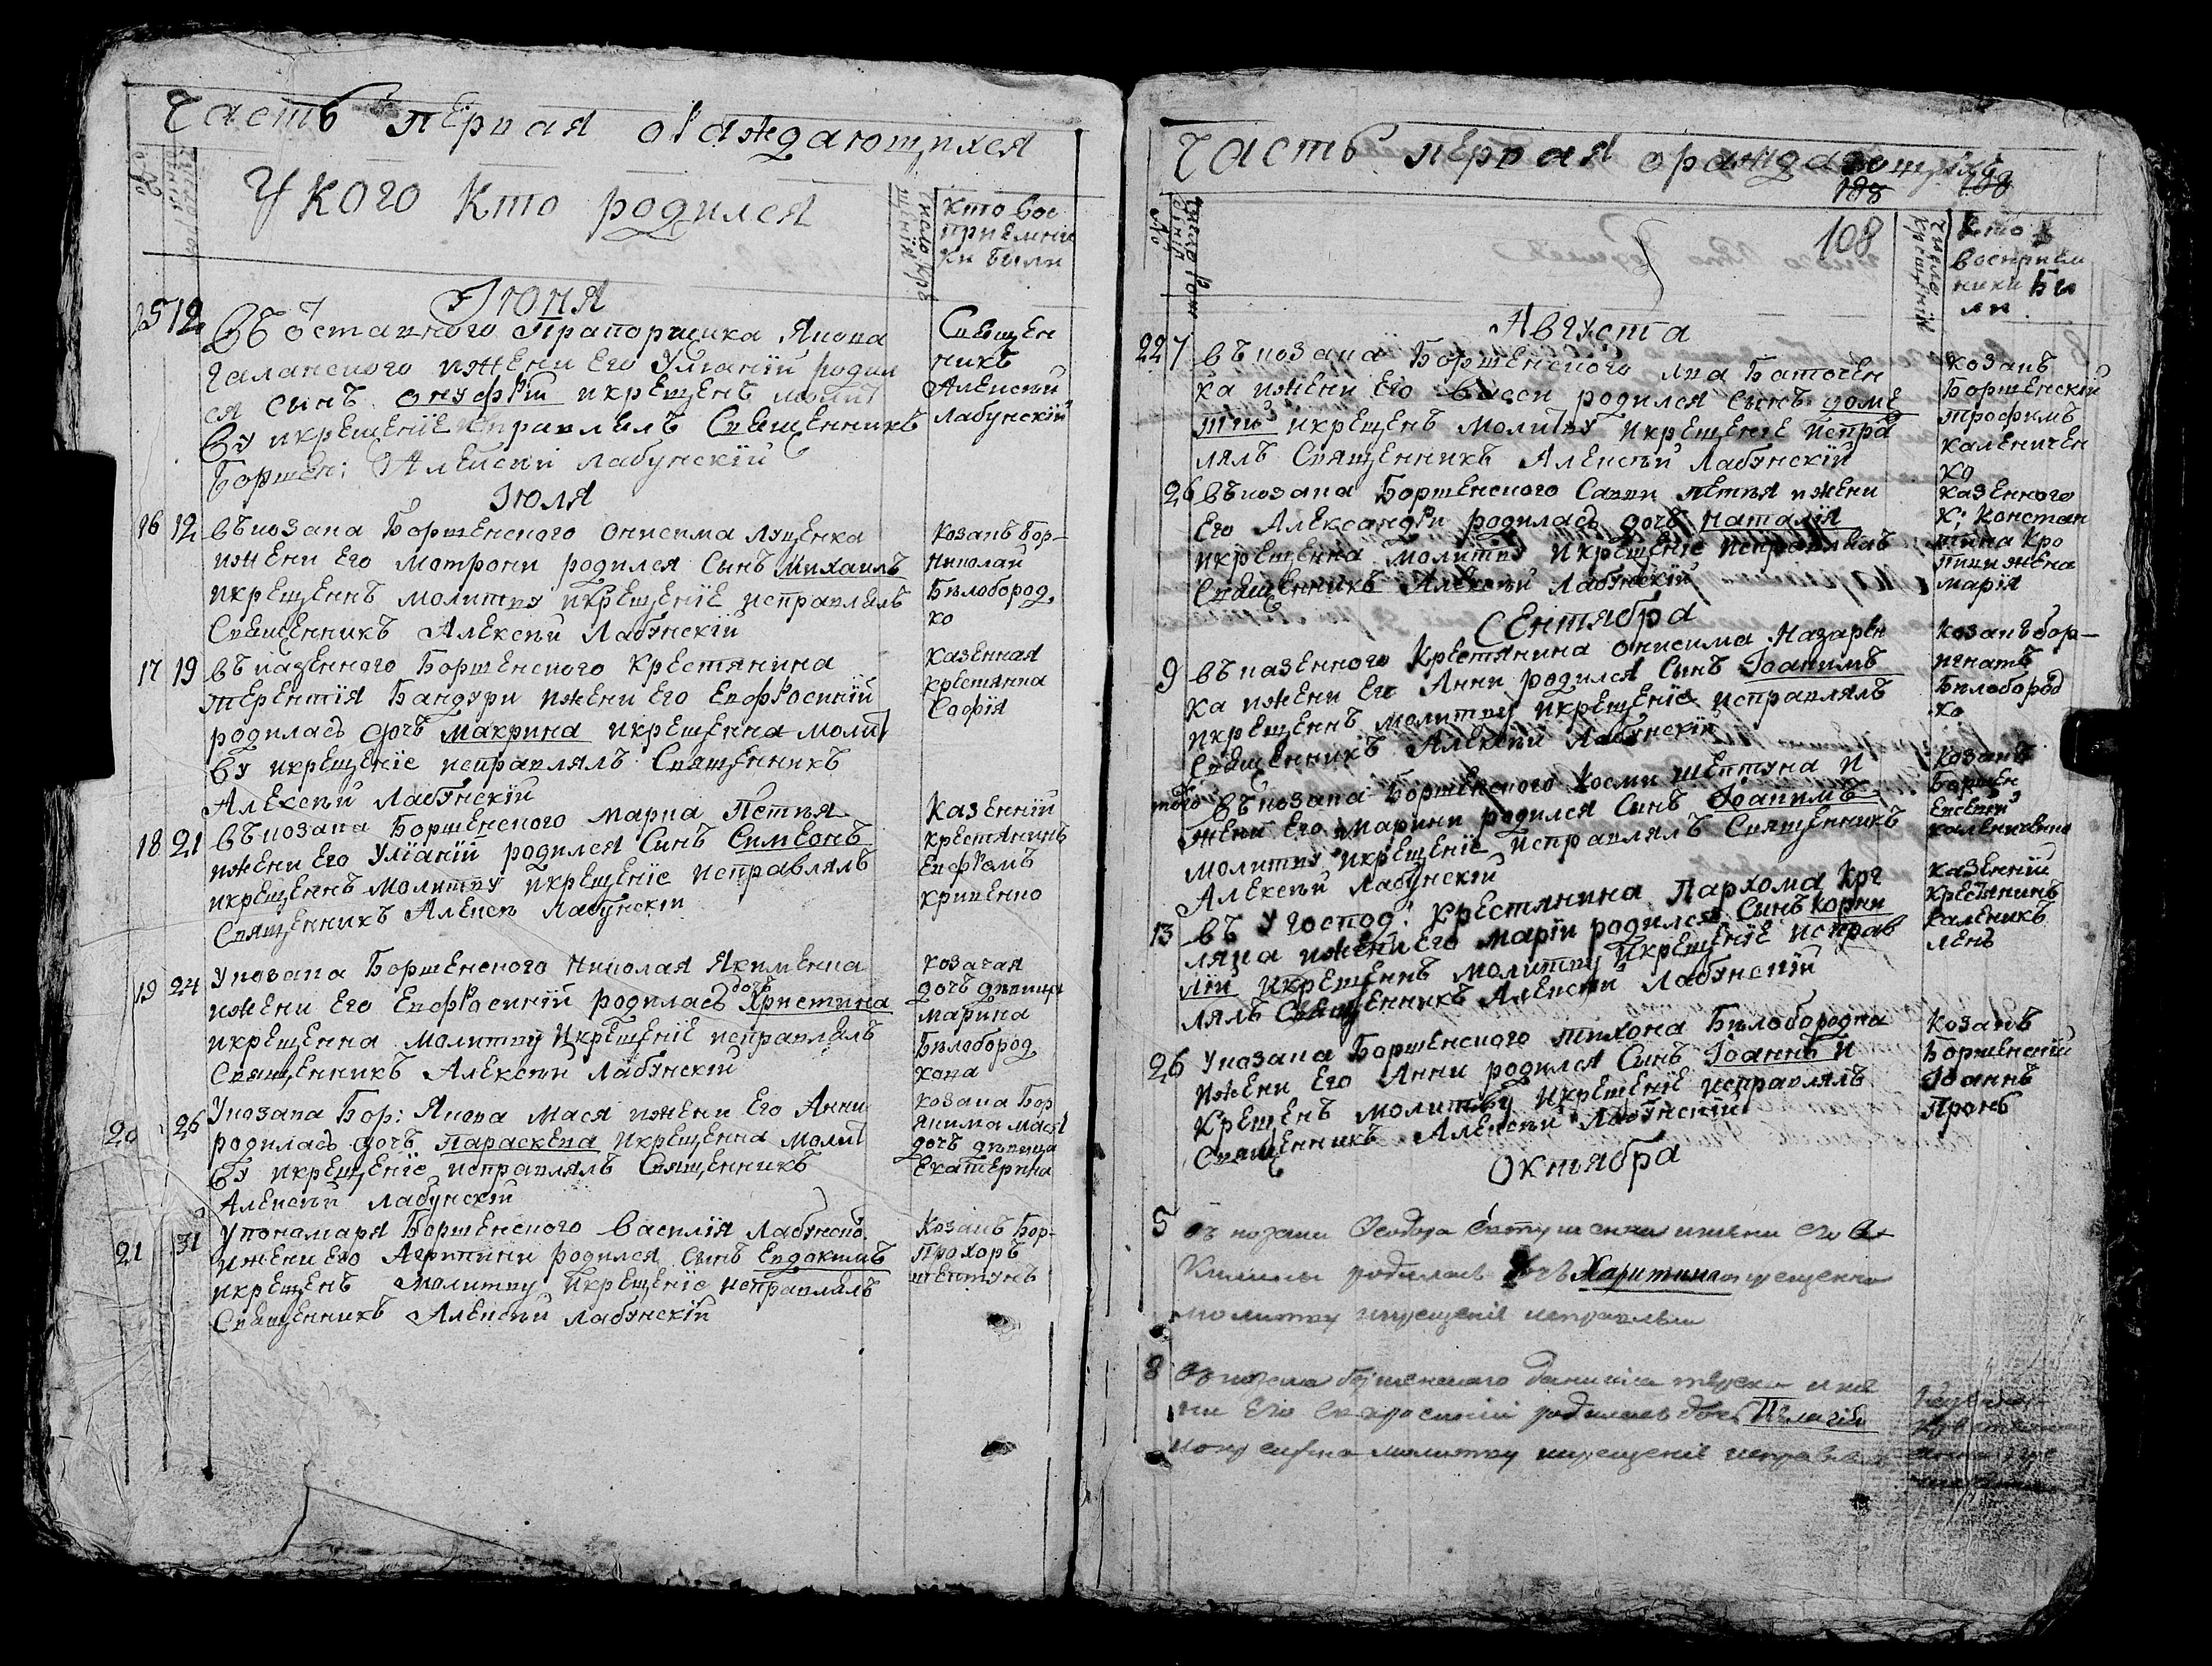 Часть первая ораждающихся
Число рождения
У кого кто родился
Число крещения
кто вос
приемни
ки были
Июня
15 12 Въ оставного Прапорщика Якова
Галанского ижени Его Улианій родил
ся сынъ Онуфрій икрещенъ молит
ву икрещеніе исправлялъ Священникъ
Боршен: Алексѣй Лабунскій
Священ
никъ
Алексѣй
Лабунскій
Іюля
16 12 въ козака Боршенского Онисима Луценка
ижени Его Мотрони родился Сынъ Михаилъ
икрещеннъ молитву икрещеніе исправлялъ
Священникъ Алексѣй Лабунскій
козакъ Бор-
Николай
Бѣлобород
ко
17 19 въ казенного Боршенского Крестянина
Терентія Бандури ижени Его Евфросиній
родилась дочъ Макрина икрещенна молит
ву икрещеніе исправлялъ Священникъ
Алексѣй Лабунскій
казенная
крестянка
Софія
18 21 въ козака Боршенского Марка Петъя
ижени Его Уліаній родился Синъ Симеонъ
икрещеннъ молитву икрещеніе исправлялъ
Священникъ Алексѣ Лабунскій
Казенній
крестянинъ
Евфремъ
кривенко
19 24 Укозака Боршенского Николая Якименка
дочъ
ижени Его Евфросиній родилась Христина
икрещенна молитву икрещеніе исправлялъ
Священникъ Алексѣй Лабунскій
козачая
дочъ дѣвица
марина
Бѣлобород
кова
20 26 Укозака Бор: Якова Мася ижени Его Анни
родилась дочъ Параскева икрещенна молит
ву икрещеніе исправлялъ Священникъ
Алексѣй Лабунскій
козака Бор
Якима мася
дочъ дѣвица
Екатерина
21 31 Упономаря Боршенского Василія Лабунско
ижени Его Агрипини родился сынъ Евдокимъ
икрещенъ молитву икрещеніе исправлялъ
Священникъ Алексѣй Лабунскій
Козакъ Бор-
Прохоръ
шептунъ
Часть первая ораждающихся
188
108
№
Число рож
денія
Число
крещенія
Кто
воспріем
ники Бы
ли
Августа
22 7 въ козака Боршенского Баточен
ка ижени Его Васси родился сынъ доме
тій икрещенъ молитву икрещеніе испра
лялъ Священникъ Алексѣй Лабунскій
козакъ
Боршенскій
трофимъ
каленичен
ко
26 въ козака Боршенского Савви петъя ижени
Его Александри родилась дочъ Наталія
икрещенна молитву икрещеніе исправлялъ
Священникъ Алексѣй Лабунскій
казенного
К: Констан
тина Кро
жена
марія
Сентября
9 въ казенного крестянина Онисима Назарен
ка ижени Его Анни родился Сынъ Іоакимъ
икрещеннъ молитву икрещеніе исправлялъ
Священникъ Алексѣй Лабунскій
козакъ бор-
игнатъ
Бѣлобород
ко
того въ козака Боршенского Косми Шептуна и
жени Его Марини родился Синъ Іоакимъ
молитву икрещеніе исправлялъ Священникъ
Алексѣй Лабунскій
козакъ
Боршен
Евсевій
13 въ У господ: крестянина Пархома Кри
ляка ижени Его маріи родился Сынъ Корни
лій икрещеннъ молитву икрещеніе исправ
лялъ Священникъ Алексѣй Лабунскій
казенній
крестянинъ
Каленикъ
лень
26 Укозака Боршенского тихона Бѣлобородка
ижени Его Анни родился Синъ Іоаннъ и
крещенъ молитву икрещеніе исправлялъ
Священникъ Алексѣй Лабунскій
Козакъ
Боршенскій
Іоаннъ
Пронъ
Октября
5 въ козака Феодора ижени его А
килины родилась дочъ Харитина икрещенна
молитву икрещеніе исправлялъ
8 въ козака боршенского Данила ижѣ
ни Его Евфросиній родилась дочъ Пелагія
молитву икрещеніе исправлялъ